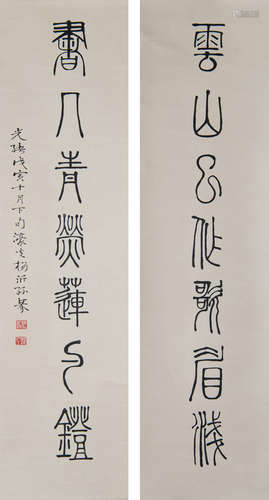 雲山幻作歌眉淺
書几青熒蓮勺鐙
光緒戊寅十月下旬濠叟楊沂孫篆